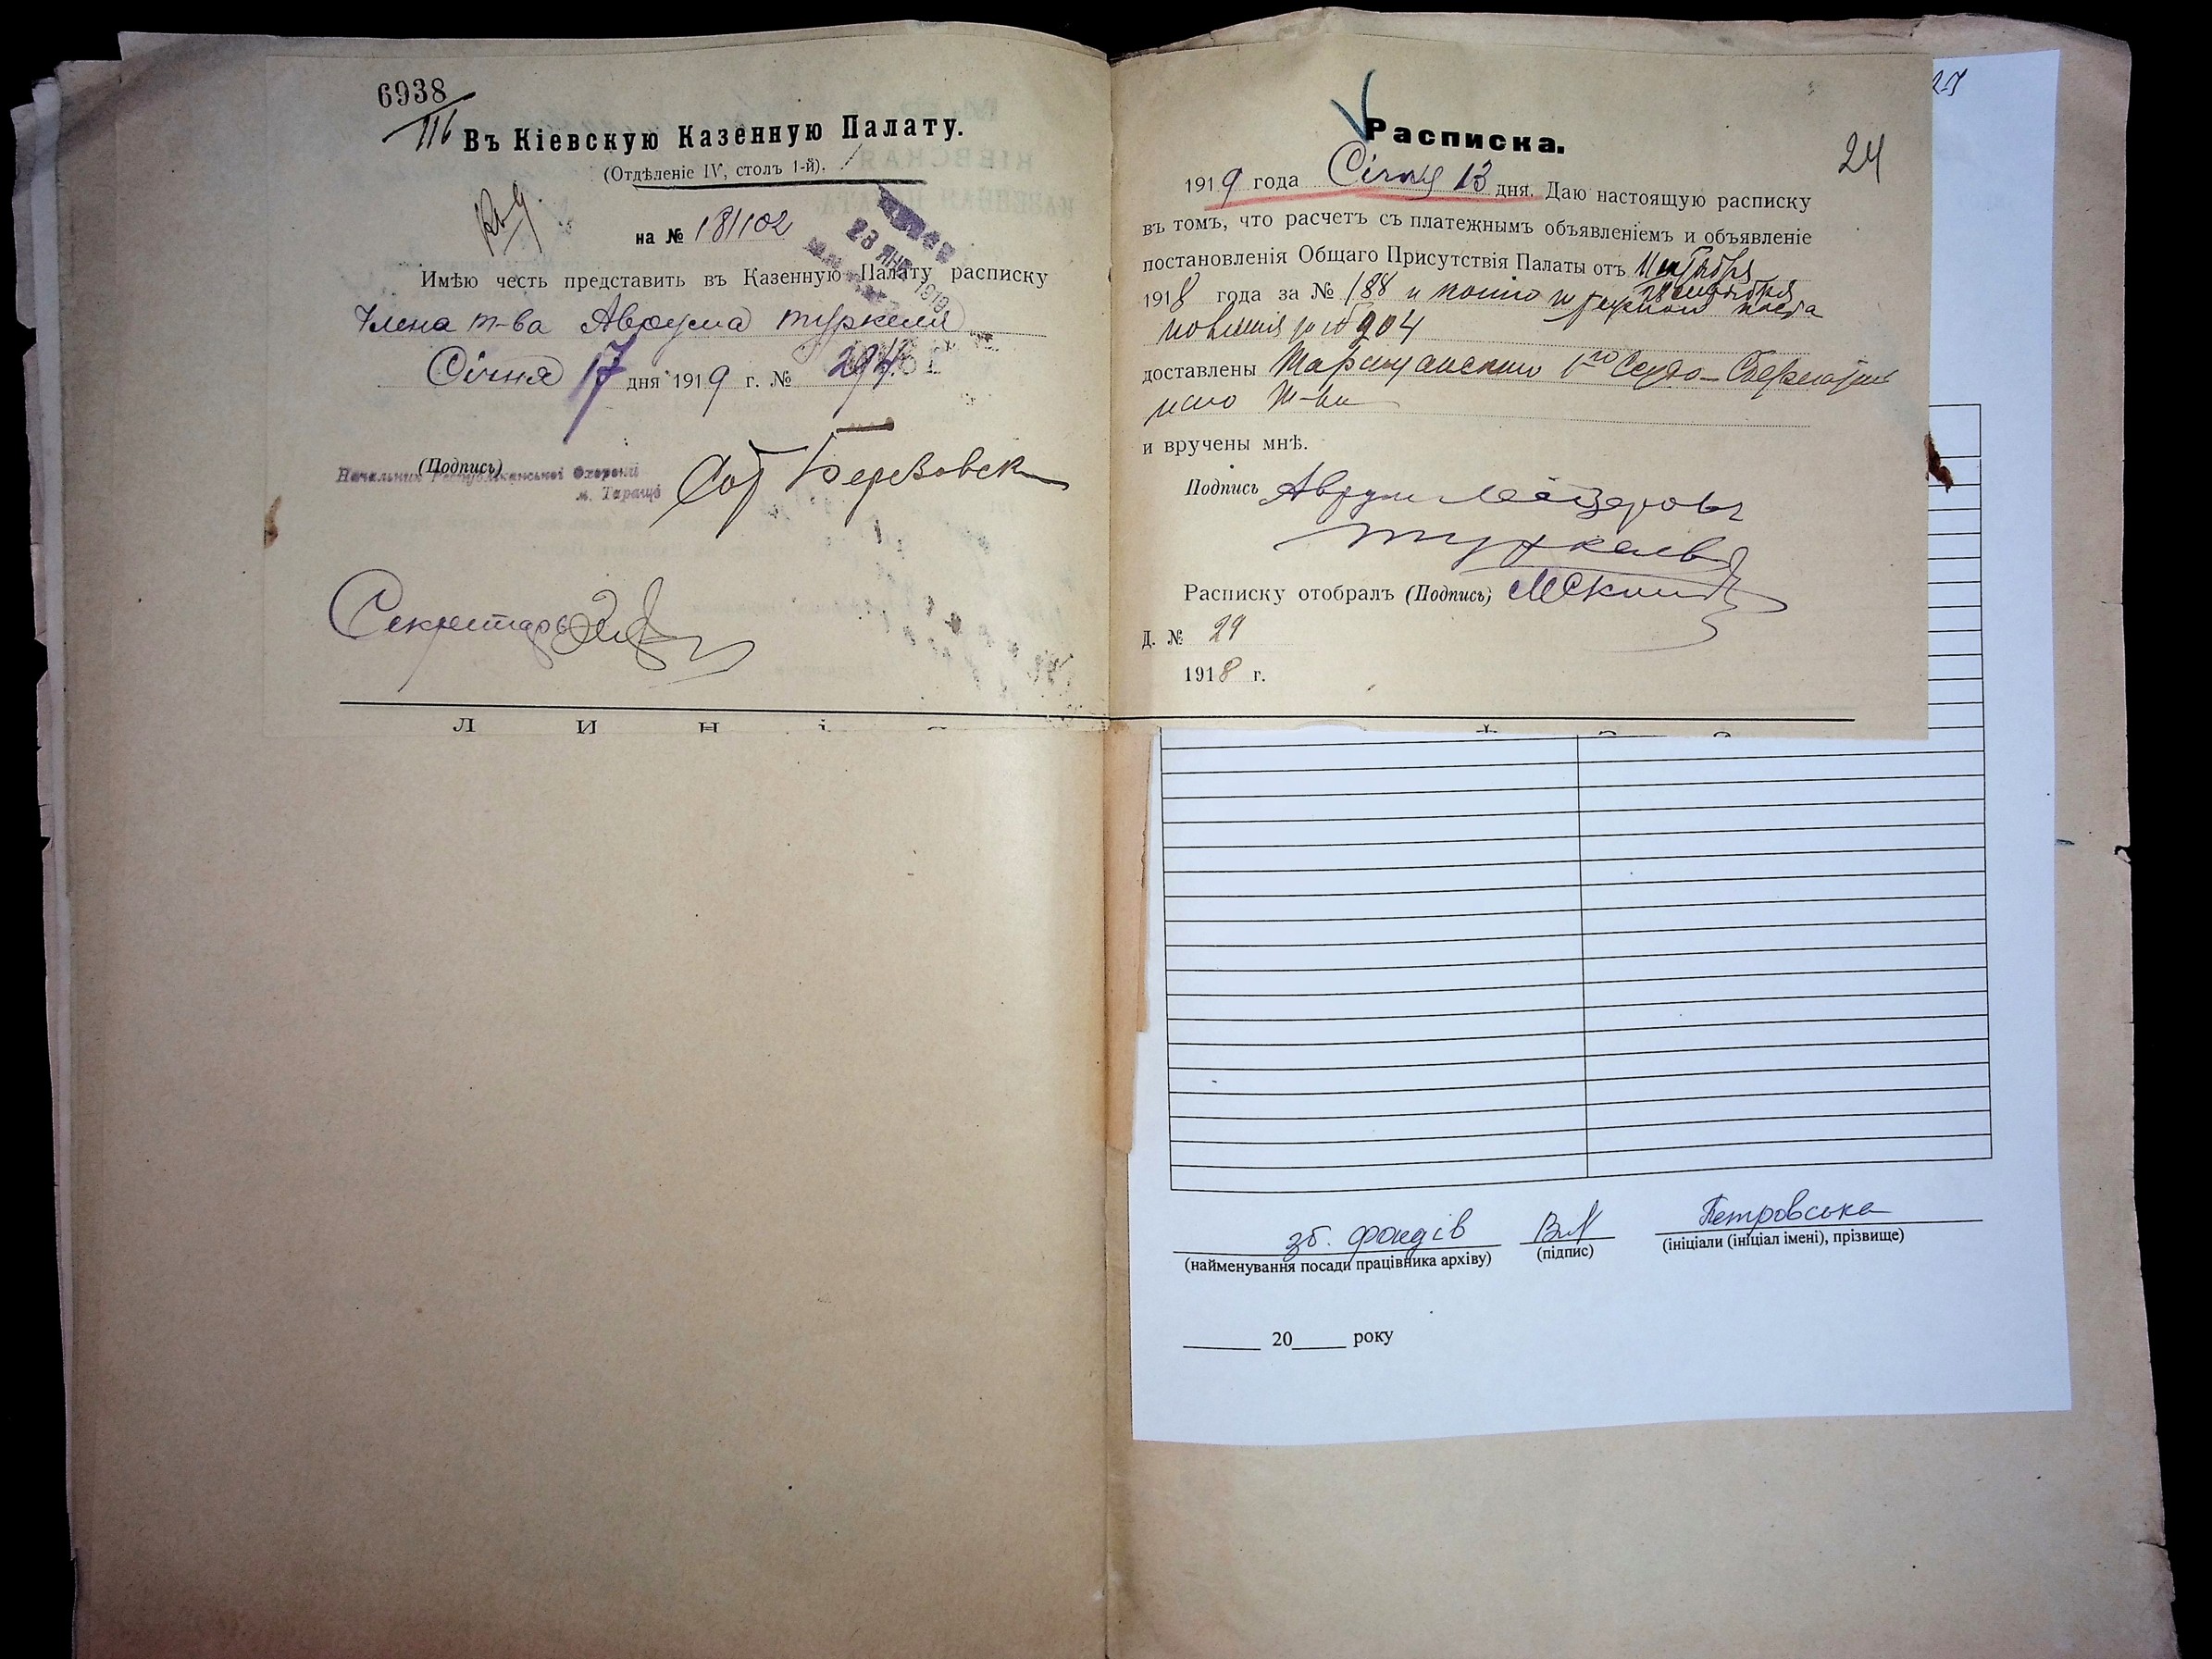 6938
116
Въ Кіевскую Казенную Палату.
(Отдѣленіе IV, столъ 1-й).
на № 181102
23 ЯНВ 1919
Имѣю честь представить въ Казенную Палату расписку
Члена т-ва Аврума Туркеля
Січня 17 дня 1919 г. №
(Подпись)
Начальник Републіканської Охорони
м. Таращі
Сот Березовск
Секретарь
Л И Н І
24
Расписка.
1919 года Січня 13 дня. Даю настоящую расписку
въ томъ, что расчетъ съ платежнымъ объявленіемъ и объявленіе
постановленія Общаго Присутствія Палаты отъ 11 октября
1918 года за № 188 и
№ 904
доставлены Таращанскому 1го Ссудо-Сберегатель
ного Т-ва
и вручены мнѣ.
Подпись Аврум Лейзеровъ
Туркель
Расписку отобралъ (Подпись)
Д. № 29
1918 г.
27
зб. фондів
Петровська
(найменування посади працівника архіву) (підпис) (ініціали (ініціал імені), прізвище)
20 року